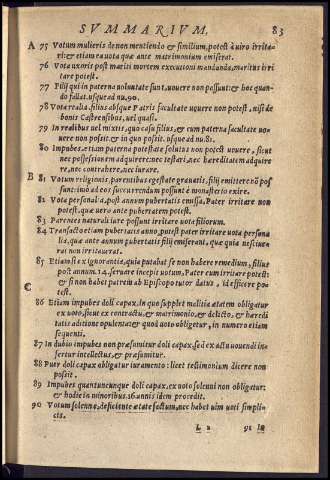 SVMMARIVM. 83
A 75 Votum mulieris de non mentiendo & similium, potest à viro irrita-
ri: & etiam ea vota quæ ante matrimonium emiserat.
76 Vota uxorit post mariti mortem executioni mandanda, maritus irri
tare potest.
77 Filij qui in paterna voluntate sunt, vovere non possunt: & hoc quan-
do fallat. usque ad nu. 90.
78 Vota realia filius absque Patris facultate vovere non potest, nisi de
bonis Castrensibus, vel quasi.
79 In realibus vel mixtis, quo casu filius, & cum paterna facultate vo-
vere non possit. & in quo possit. usque ad nu. 81.
80 Impubes, etiam paterna potestate solutus non potest vovere, sicut
nec possessionem adquirere: nec testari, nec hæreditatem adquire
re, nec contrahere, nec iurare.
B 81 Votum religionis, parentibus egestate gravatis, filij emittere nō pos
sunt: imò ad eos succurrendum possunt è monasterio exire.
81 Vota personalia, post annum pubertatis emissa, Pater irritare non
potest, quæ vero ante pubertatem potest.
83 Parentes naturali iure possunt irritare vota filiorum.
84 Transacto etiam pubertatis anno, potest pater irritare vota persona
lia, quæ ante annum pubertatis filij emiserant, quæ quia nesciuit
rat non irritaverat.
85 Etiamsi ex ignorantia, quia putabat se non habere remedium, filius
post annum. 14. servare incepit votum, Pater eum irritare potest:
C & si non habet patrem ab Episcopo tutor datus, id efficere po-
test.
86 Etiam impubes doli capax, in quo supplet malitia ætatem obligatur
ex voto, sicut ex contractu, & matrimonio, & delicto, & hæredi
tatis aditione opulenta: & quod voto obligetur, in numero etiam
sequenti.
87 In dubio impubes non præsumitur doli capax, sed ex actu vovendi in-
fertur intellectus, & præsumitur.
88 Puer doli capax obligatur iuramento: licet testimonium dicere non
possit.
89 Impubes quantuncunque doli capax, ex voto solenni non obligatur:
& hodie in minoribus. 16. annis idem procedit.
90 Votum solenne, deficiente ætate factum, nec habet vim voti simpli-
cis.
L 2 91 In